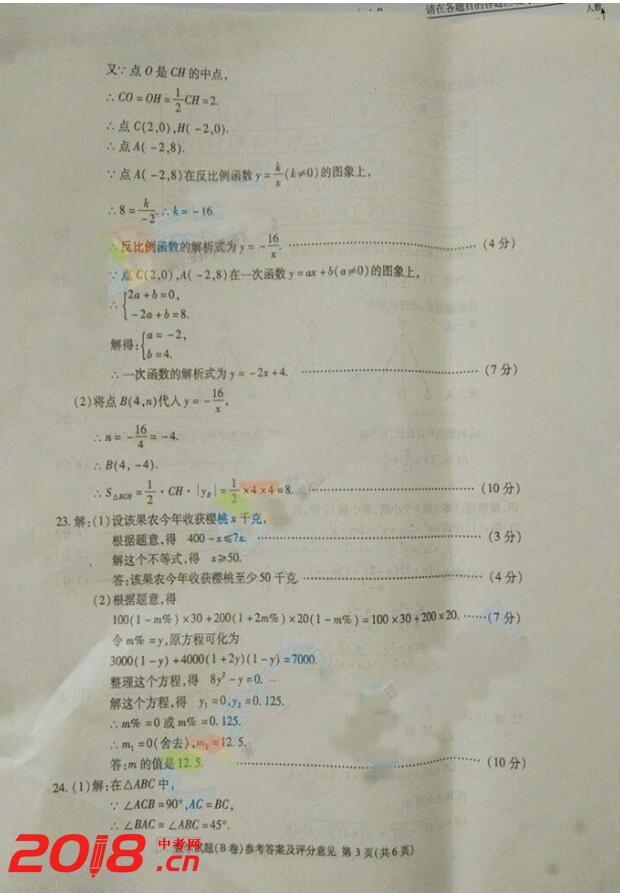 请在各题目的答题区域
人数
又∵点O是CH的中点,
∴CO=OH=1/2CH=2.
∴点C(2,0),H(-2,0).
∴点A(-2,8).
∵点A(-2,8)在反比例函数y=k/x(k≠0)的图象上,
∴8=k/-2.∴k=-16.
∴反比例函数的解析式为y=-16/x. ……………………(4分)
∵点C(2,0),A(-2,8)在一次函数y=ax+b(a≠0)的图象上,
∴{2a+b=0,
-2a+b=8.
解得:{a=-2,
b=4.
∴一次函数的解析式为y=-2x+4. ……………………(7分)
(2)将点B(4,n)代入y=-16/x,
∴n=-16/4=-4.
∴B(4,-4).
∴S△BCH=1/2·CH·|yB|=1/2×4×4=8. ……………………(10分)
23.解:(1)设该果农今年收获樱桃x千克,
根据题意,得 400-x≤7x. ……………………(3分)
解这个不等式,得 x≥50.
答:该果农今年收获樱桃至少50千克. ……………………(4分)
(2)根据题意,得
100(1-m%)×30+200(1+2m%)×20(1-m%)=100×30+200×20. ……(7分)
令m%=y,原方程可化为
3000(1-y)+4000(1+2y)(1-y)=7000.
整理这个方程,得 8y²-y=0.
解这个方程,得 y₁=0,y₂=0.125.
∴m%=0或m%=0.125.
∴m₁=0(舍去),m₂=12.5.
答:m的值是12.5. ……………………(10分)
24.(1)解:在△ABC中,
∵∠ACB=90°,AC=BC,
∴∠BAC=∠ABC=45°.
数学试题(B卷)参考答案及评分意见 第3页(共6页)
2018中考网.cn